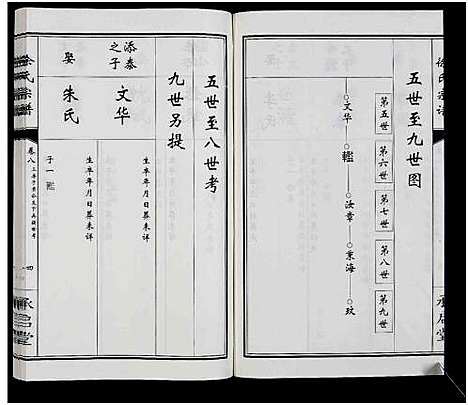 徐氏宗谱
五世至九世图
第五世
第六世
第七世
第八世
第九世
○文华——○䥽——○汝章——○东海——○玟
五世至八世考
九世另提
添泰之子
文华
生卒年月日葬未详
娶
朱氏
生卒年月日葬未详
子一
徐氏宗谱
卷八
四
承启堂